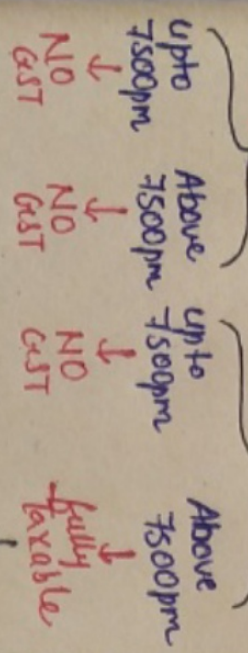 upto
7500pm
↓
NO
GST
Above
7500pm
↓
NO
GST
upto
7500pm
↓
NO
GST
Above
7500pm
↓
fully
taxable